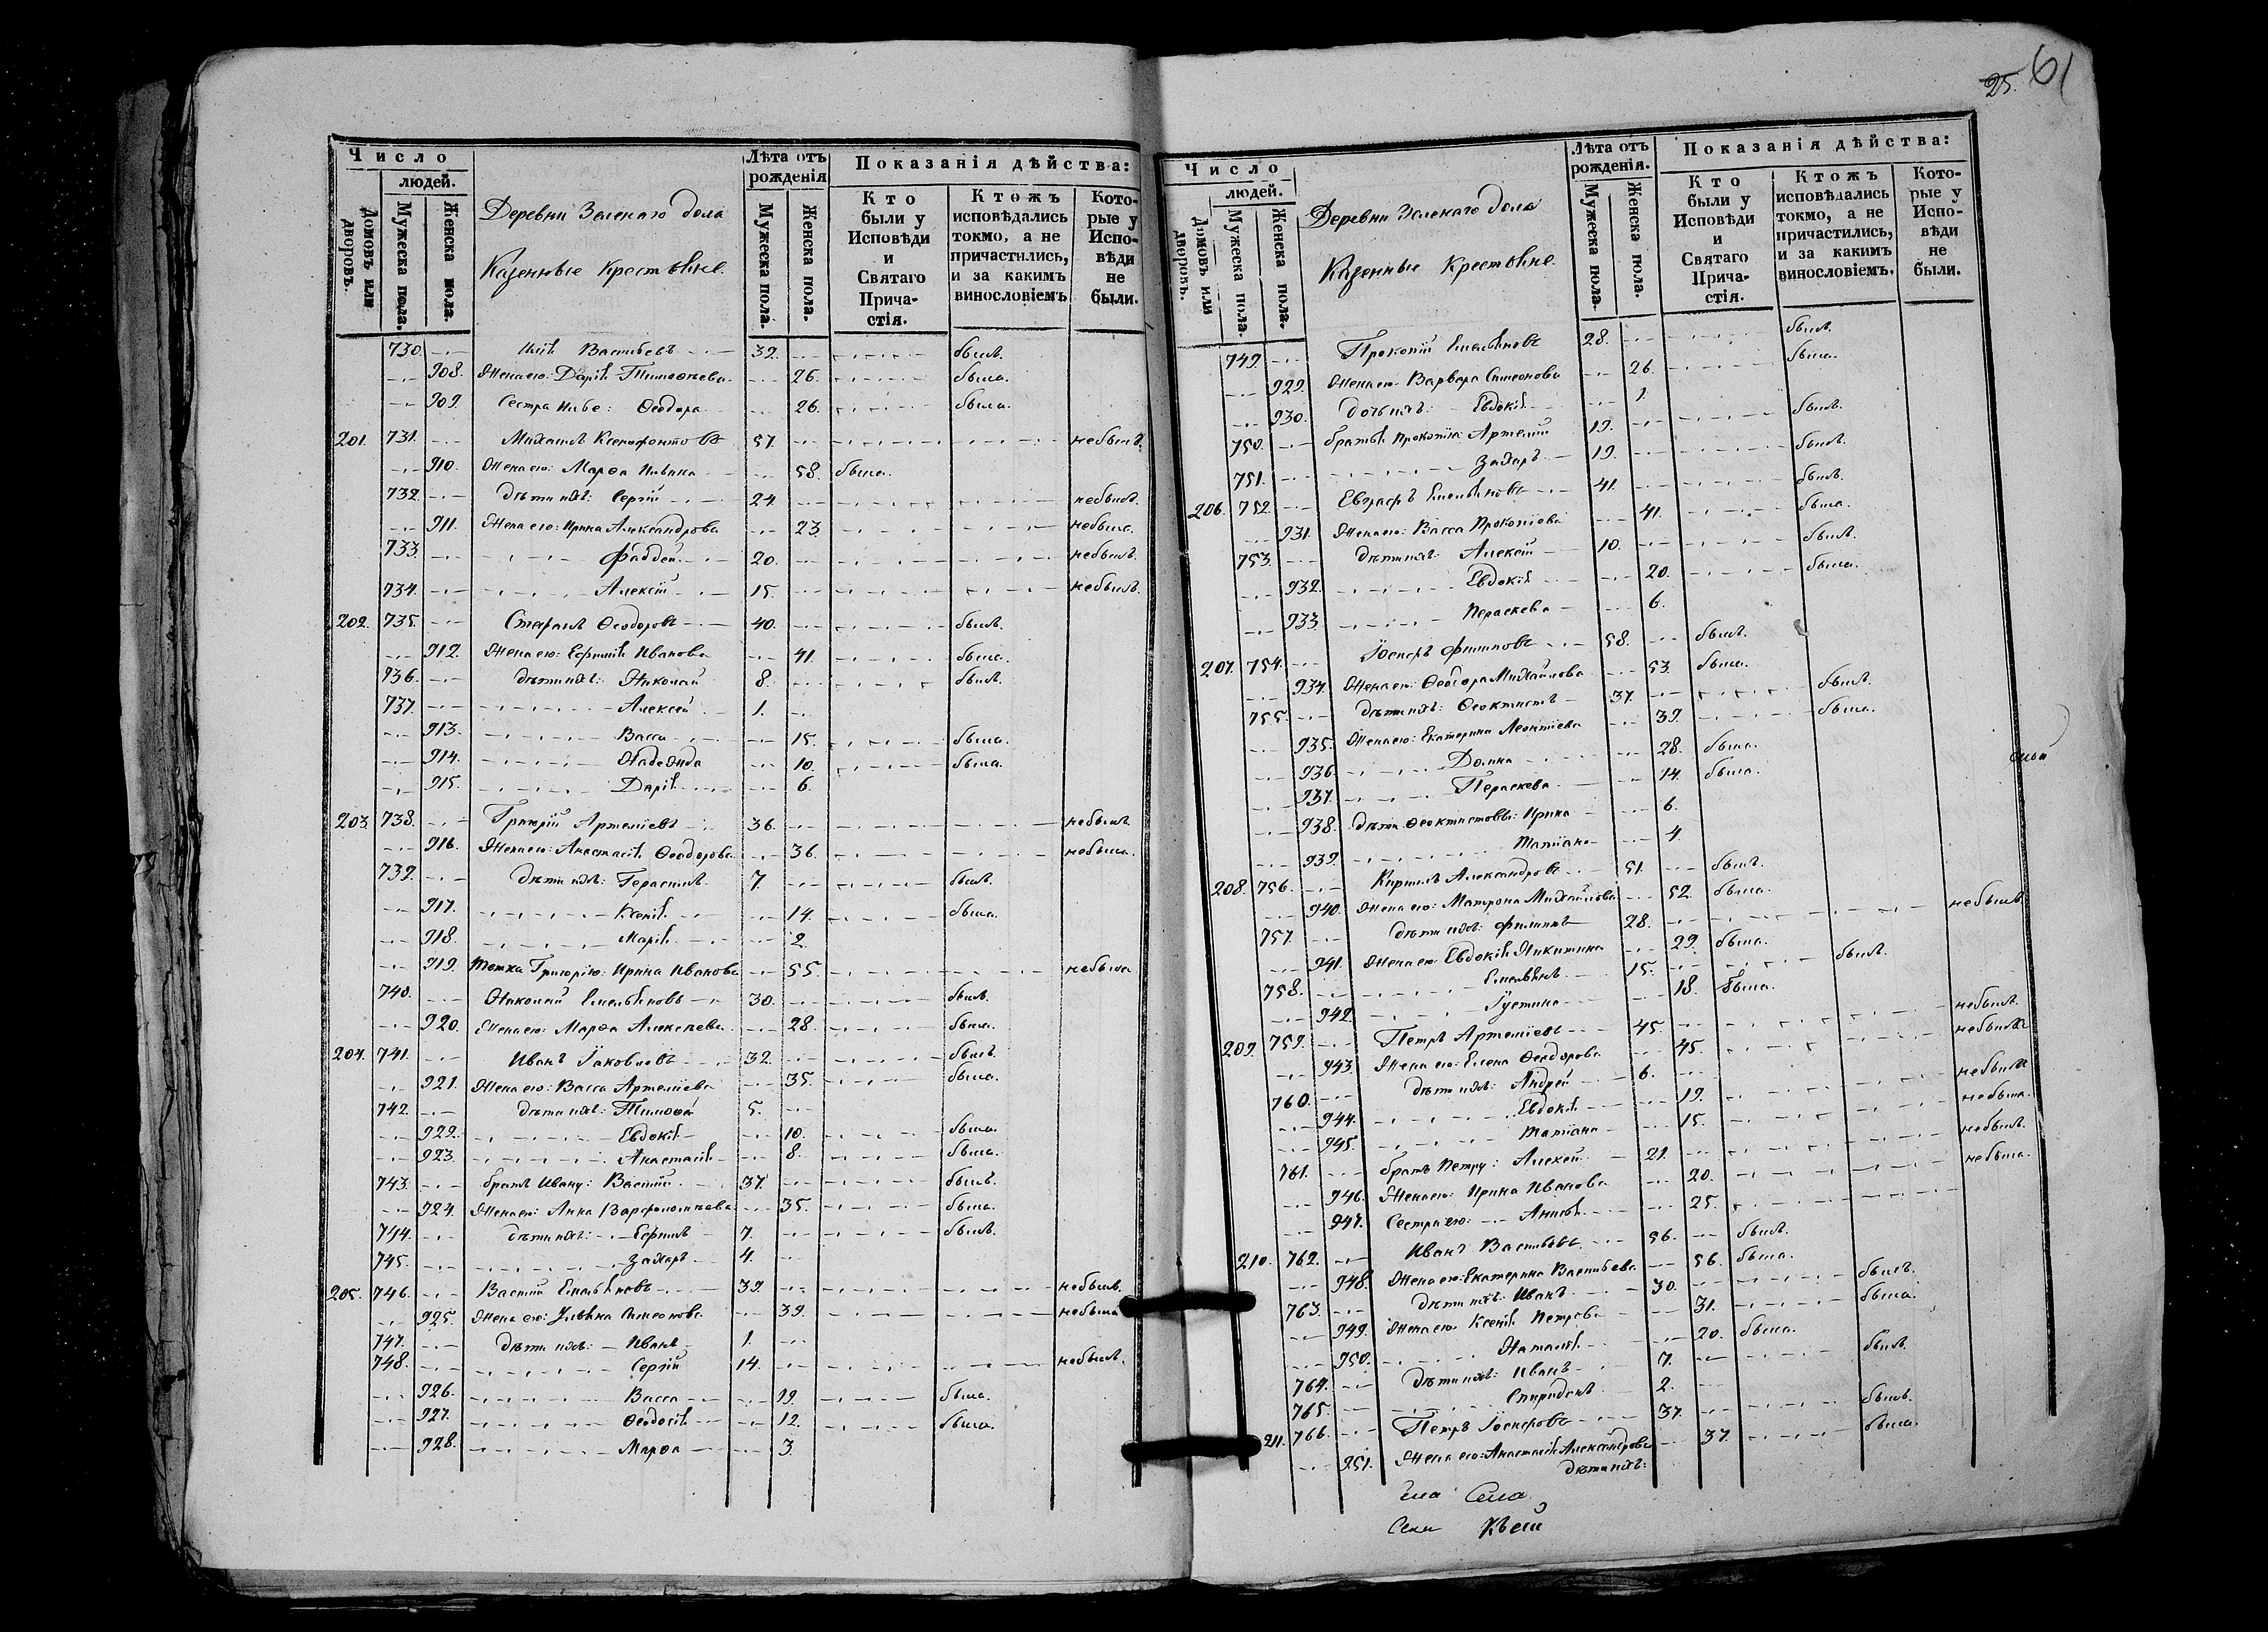 25. 61
Число
людей.
Домовъ или дворовъ.
Мужеска пола.
Женска пола.
Деревни Зеленаго дола
Казенные Крестьяне.
Лѣта отъ рожденія
Мужеска пола.
Женска пола.
Показанія дѣйства:
Кто были у Исповѣди и Святаго Прича-стія.
Ктожъ исповѣдались токмо, а не причастились, и за какимъ винословіемъ
Кото-рые у Испо-вѣди не были.
730. Илія Васильевъ 32. былъ.
908. Жена его: Дарія Тимоѳеева 26. была.
909. Сестра Ильѣ: Ѳеодора 26. была.
201. 731. Михаилъ Ксенофонтовъ 57. не былъ.
910. Жена его: Марѳа Ильина 58. была.
732. дѣти ихъ: Сергій 24. не былъ.
911. Жена его: Ирина Александрова 23. не была.
733. Фаддей 20. не былъ.
734. Алексій 15. не былъ.
202. 735. Стефанъ Ѳеодоровъ 40. былъ.
912. Жена его: Евфимія Иванова 41. была.
736. дѣти ихъ: Николай 8. былъ.
737. Алексей 1.
913. Васса 15. была.
914. Надежда 10. была.
915. Дарія 6.
203. 738. Григорій Артеміевъ 36. не былъ.
916. Жена его: Анастасія Ѳеодорова 36. не была.
739. дѣти ихъ: Герасимъ 7. былъ.
917. Ксенія 14. была.
918. Марія 2.
919. Тетка Григорію: Ирина Иванова 55. не была
740. Николай Емельяновъ 30. былъ.
920. Жена его: Марѳа Алексеева 28. была.
204. 741. Иванъ Іаковлевъ 32. былъ.
921. Жена его: Васса Артеміева 35. была.
742. дѣти ихъ: Тимоѳей 5.
922. Евдокія 10. была.
923. Анастасія 8. была.
743. братъ Ивану: Василій 37. былъ.
924. Жена его: Анна Варфоломеева 35. была.
744. дѣти ихъ: Ефимъ 7. былъ.
745. Захаръ 4.
205. 746. Василій Емельяновъ 39. не былъ.
925. Жена его: Ульяна Симеонова 39. не была
747. дѣти ихъ: Иванъ 1.
748. Сергій 14. не былъ.
926. Васса 19. была.
927. Ѳеодосія 12. была.
928. Марѳа 3.
Число
людей.
Домовъ или дворовъ.
Мужеска пола.
Женска пола.
Деревни Зеленаго дола
Казенные Крестьяне
Лѣта отъ рожденія.
Мужеска пола.
Женска пола.
Показанія дѣйства:
Кто были у Исповѣди и Святаго Прича-стія.
Ктожъ исповѣдались токмо, а не причастились, и за какимъ винословіемъ.
Кото-рые у Испо-вѣди не были.
749. Прокопій Емельяновъ 28. былъ.
929. Жена его: Варвара Симеонова 26. была.
930. дочь ихъ: Евдокія 1.
750. братья Прокопія: Артемій 19. былъ.
751. Захаръ 19. былъ.
206. 752. Евграфъ Емельяновъ 41. былъ.
931. Жена его: Васса Прокопіева 41. была.
753. дѣти ихъ: Алексій 10. былъ.
932. Евдокія 20. была.
933. Параскева 6.
207. 754. Іосифъ Филиповъ 58. былъ.
934. Жена его: Ѳеодора Михайлова 53. была.
755. дѣти ихъ: Ѳеоктистъ 37. былъ.
935. Жена его: Екатерина Леонтіева 39. была.
936. Домна 28. была.
937. Параскева 14. была.
938. дѣти Ѳеоктистовы: Ирина 6.
939. Татіана 4
208. 756. Кирилъ Александровъ 51. былъ.
940. Жена его: Матрона Михайлова 52. была.
757. дѣти ихъ: Филипъ 28. не былъ
941. Жена его: Евдокія Никитина 29. была.
758. Емельянъ 15. былъ.
942. Іустина 18. была.
209. 759. Петръ Артеміевъ 45. не былъ.
943. Жена его: Елена Ѳеодорова 45. не была
760. дѣти ихъ: Андрей 6.
944. Евдокія 19. не была
945. Татіана 15. не была.
761. братъ Петру: Алексей 21. не былъ.
946. Жена его: Ирина Иванова 20. не была.
947. Сестра его: Анисія 25.
210. 762. Иванъ Васильевъ 56. былъ.
948. Жена его: Екатерина Васильева 56. была.
763. дѣти ихъ: Иванъ 30. былъ.
949. Жена его Ксенія Петрова 31. была.
950. Наталія 20. была.
764. дѣти ихъ: Иванъ 7. былъ.
765. Спиридонъ 2.
211. 766. Петръ Іосифовъ 37. былъ.
951. Жена его: Анастасія Александрова 37. была.
дѣти ихъ:
Села